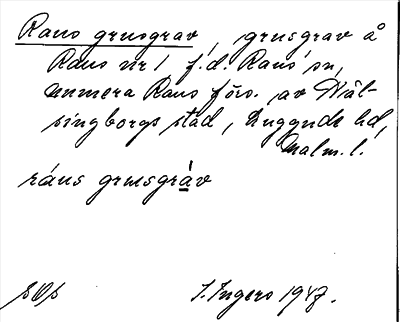 Raus grusgrav, grusgrav å
Raus nr 1 f.d. Raus sn,
numera Raus förs. av Häl-
singborgs stad, Luggude hd,
Malm. l.
ráus grusgràv
I. Ingers 1947.